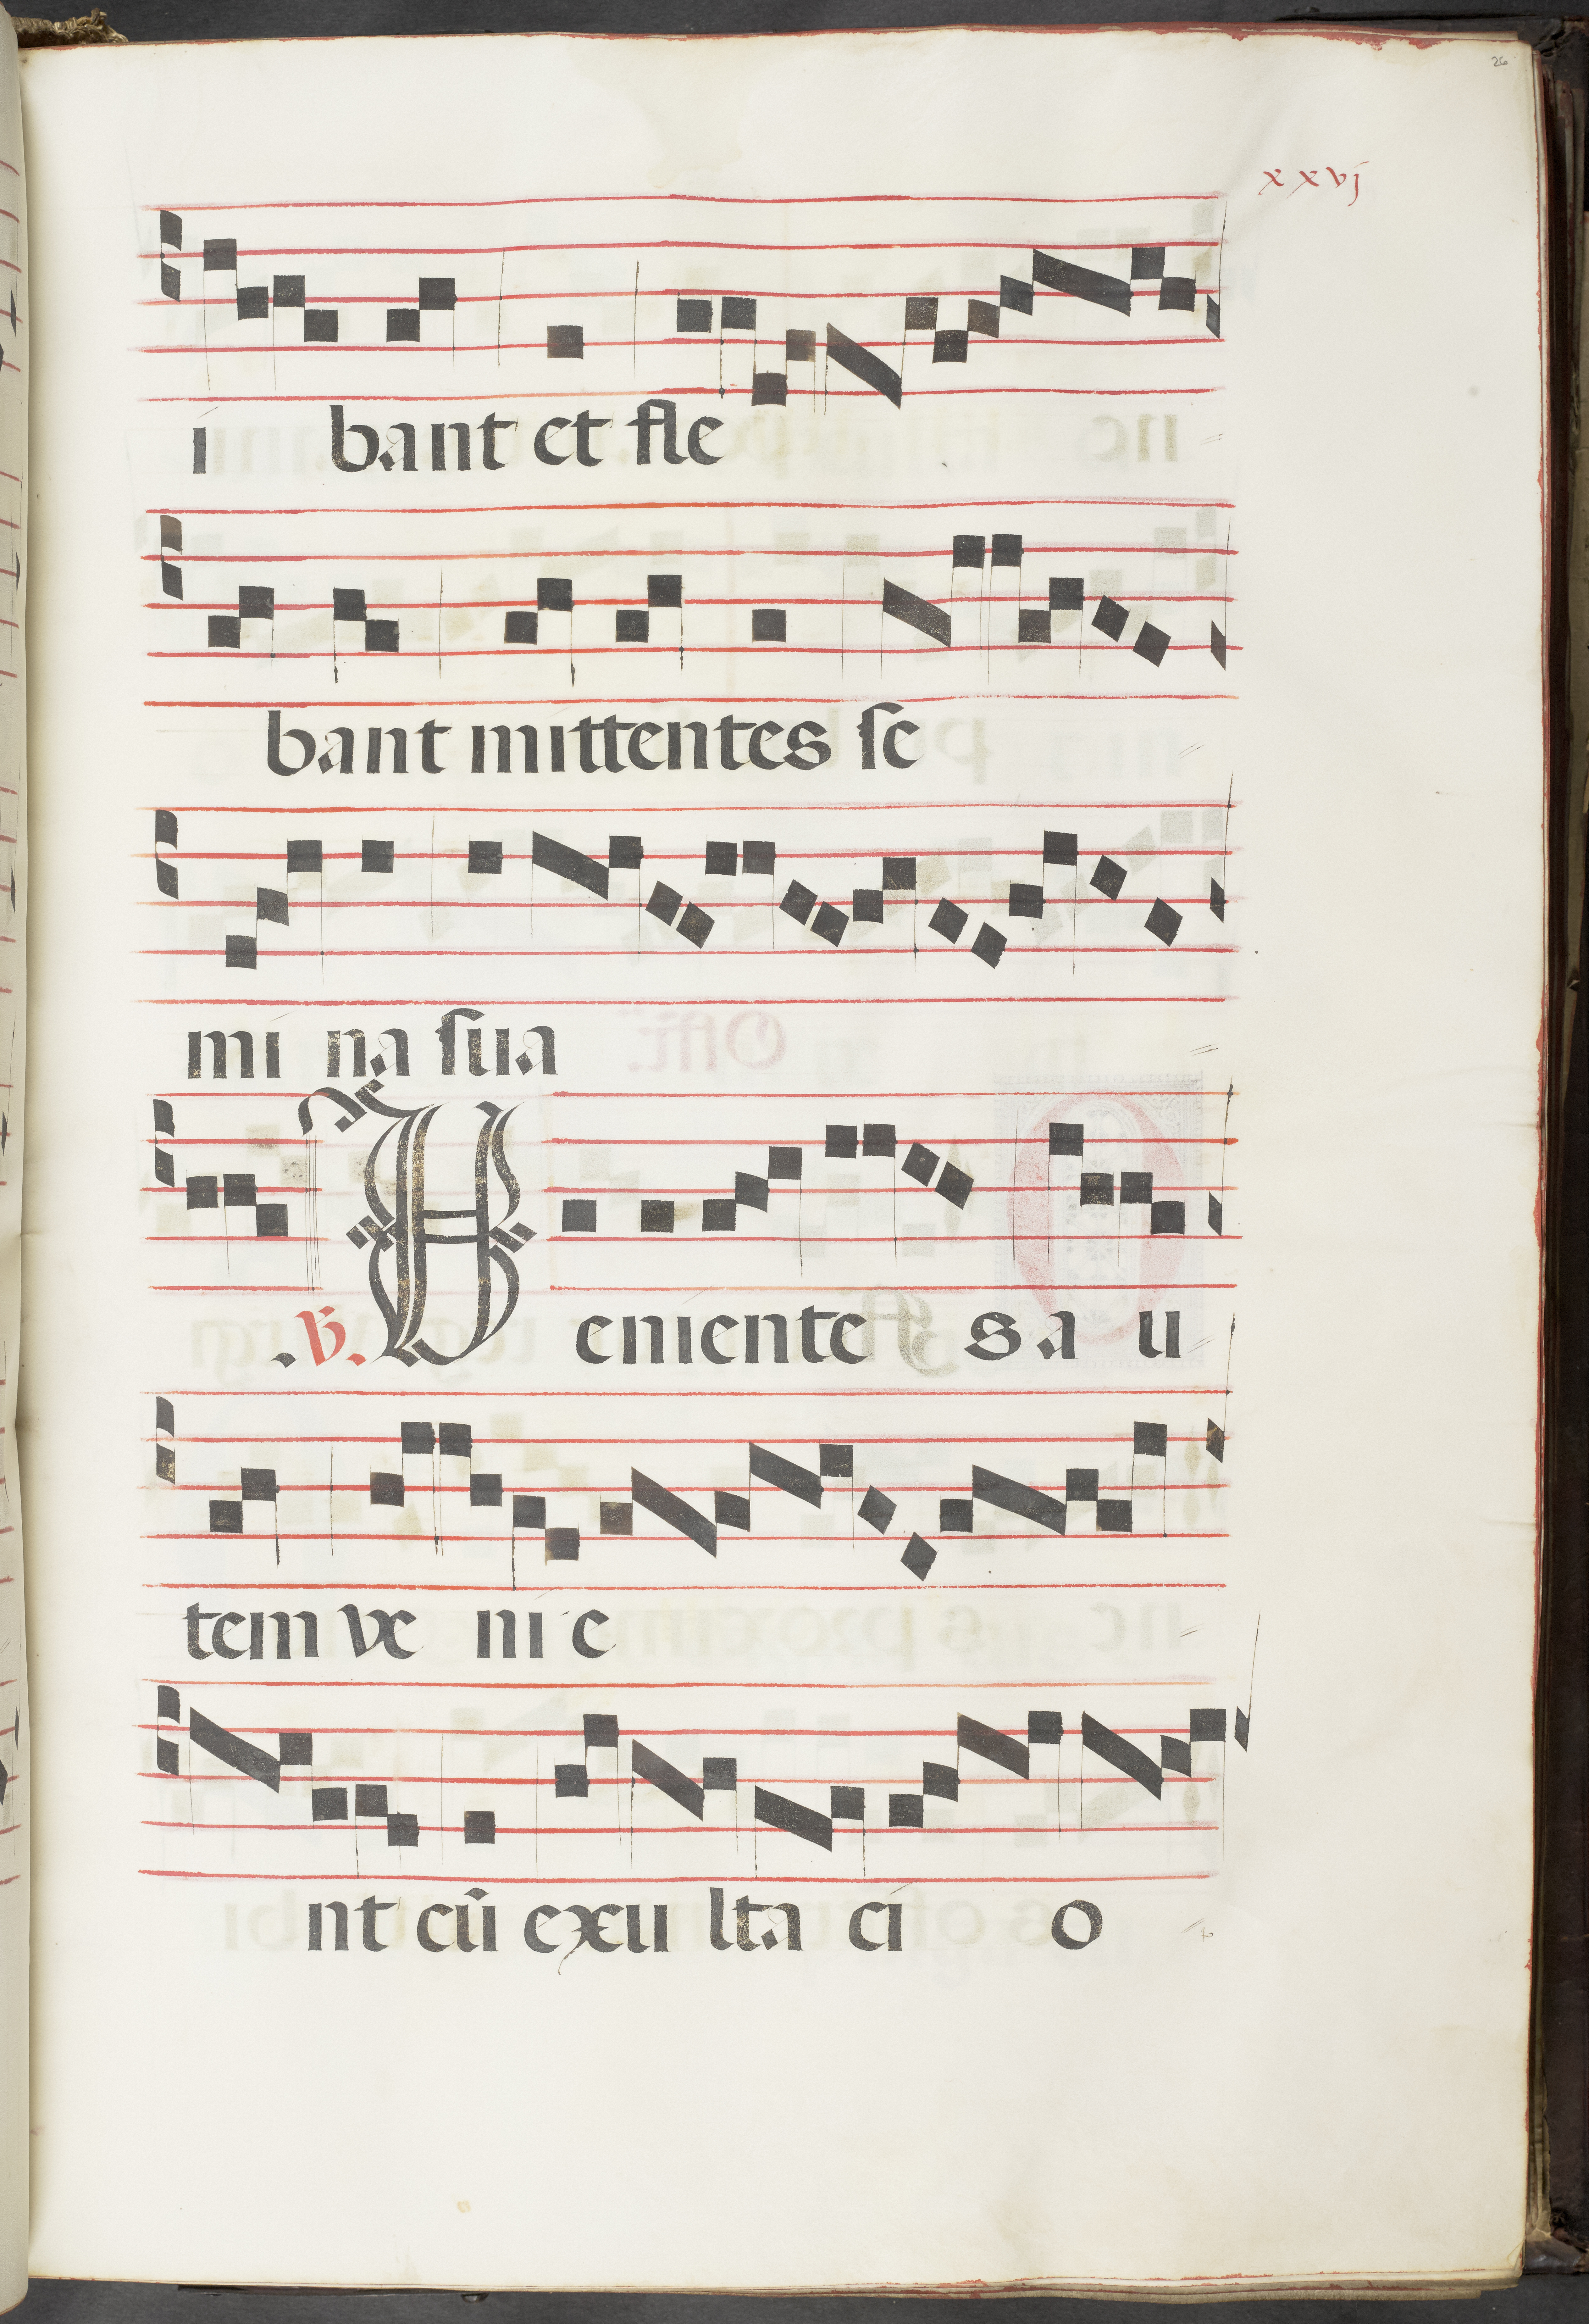 26
xxvj
i bant et fle
bant mittentes se
mi na sua
.v. V eniente s a u
tem ve ni e
nt cū exu lta ci o